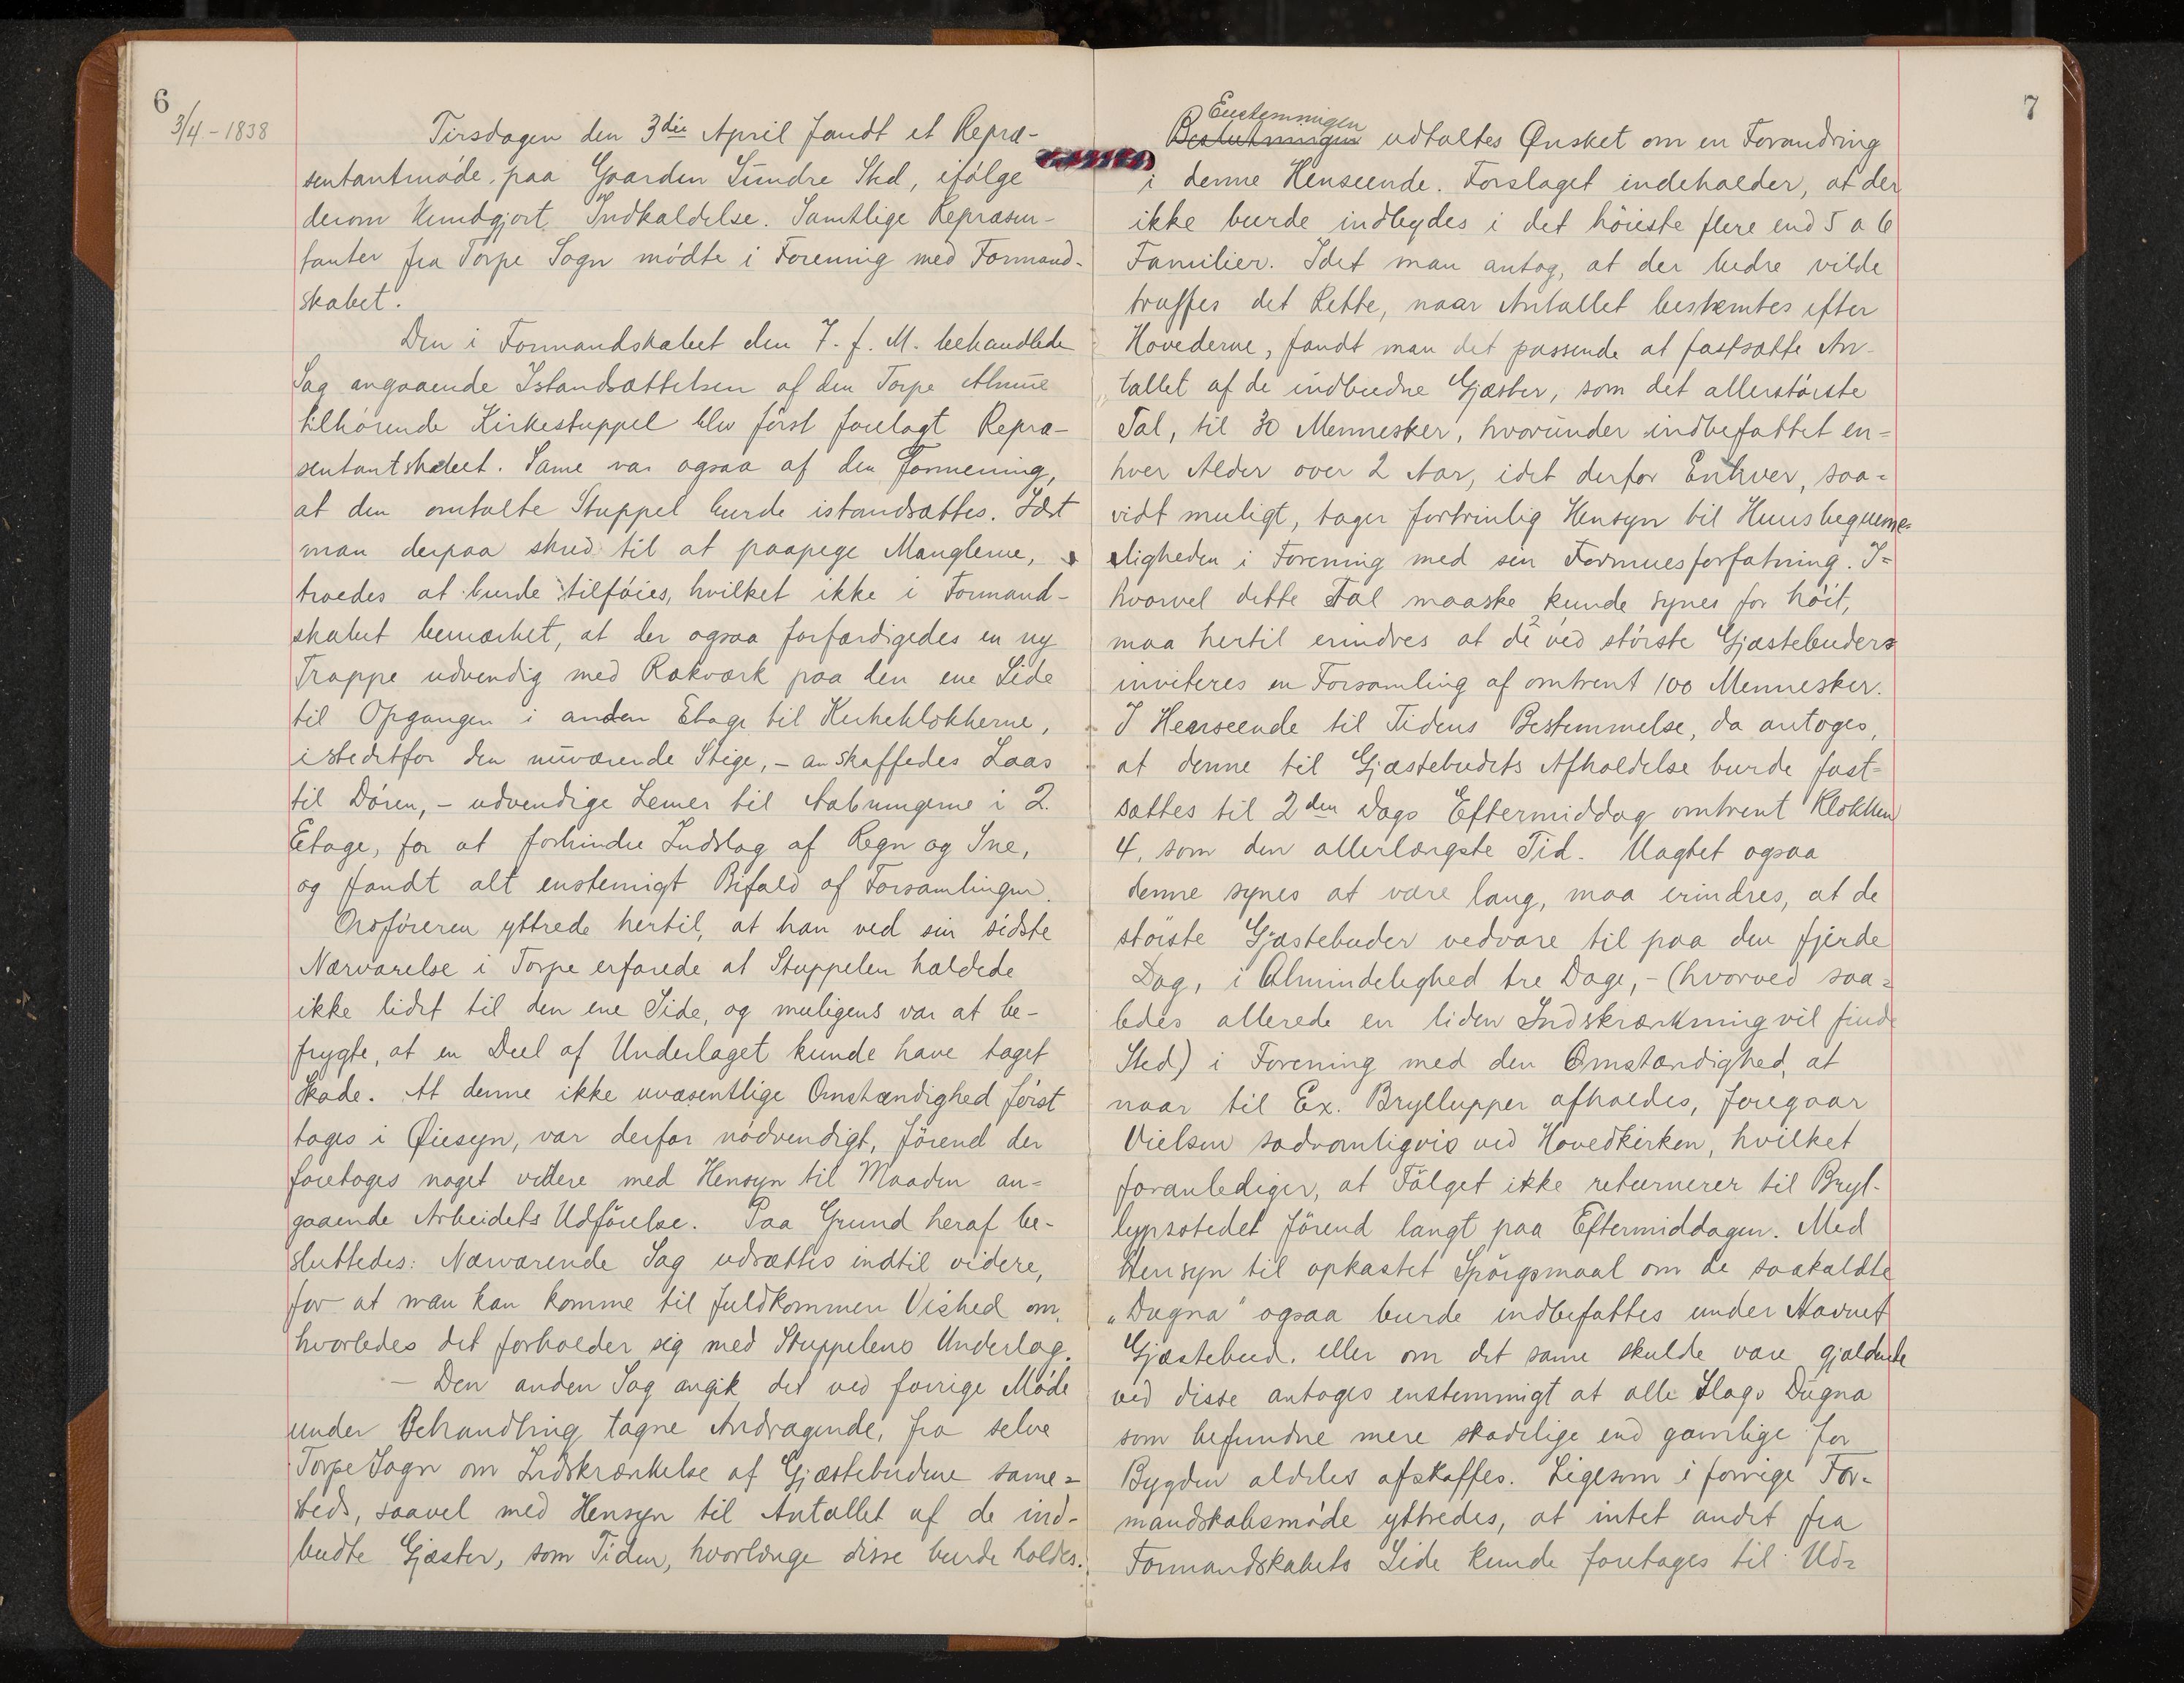 6
3/4 - 1838
Tirsdagen den 3die April fandt et Repræ-
sentantmøde paa Gaarden Sündre Sted, ifølge
derom Kundgjort Indkaldelse. Samtlige Repræsen-
tanter fra Torpe Sogn mødte i Forening med Formand-
skabet.
Den i Formandskabet den 7. f. M. behandlede
Sag angaaende Istandsættelsen af den Torpe Almue
tilhørende Kirkestuppel blev først forelagt Repræ-
sentantskabet. Same var ogsaa af den Formening,
at den omtalte Stuppel burde istandsættes. Idet
man derpaa skred til at paapege Manglerne,
troedes at burde tilføies, hvilket ikke i Formand-
skabet bemærket, at der ogsaa forfærdigedes en ny
Trappe udvendig med Rækværk paa den ene Side
til Opgangen i anden Etage til Kirkeklokkerne,
istedetfor den nuværende Stige, - anskaffedes Laas
til Døren, - udvendige Lemer til Aabningerne i 2.
Etage, for at forhindre Indslag af Regn og Sne,
og fandt alt enstemigt Bifald af Forsamlingen.
Orføreren yttrede hertil, at han ved sin sidste
Nærværelse i Torpe erfarede at Stuppelen hældede
ikke lidet til den ene Side, og muligens var at be-
frygte, at en Deel af Underlaget kunde have taget
Skade. At denne ikke uvæsentlige Omstændighed først
toges i Øiesyn, var derfor nødvendigt, førend der
foretoges noget videre med Hensyn til Maaden an=
gaaende Arbeidets Udførelse. Paa Grund heraf be-
sluttedes: Nærværende Sag udsættes indtil videre,
for at man kan komme til fuldkommen Vished om,
hvorledes det forholder sig med Stuppelens Underlag.
- Den anden Sag angik det ved forrige Møde
under Behandling tagne Andragende, fra selve
Torpe Sogn om Indskrænkelse af Gjæstebudene same=
steds, saavel med Hensyn til Antallet af de ind-
budte Gjæster, som Tiden, hvorlænge disse burde holdes.
7
Enstemmingen
Beslutningen udtaltes Ønsket om en Forandring
i denne Henseende. Forslaget indeholder, at der
ikke burde indbydes i det høieste flere end 5 a 6
Familier. Idet man antog, at der bedre vilde
træffes det Rette, naar Antallet bestemtes efter
Hovederne, fandt man det passende at fastsætte An-
tallet af de indbudne Gjæster, som det allerstørste
Tal, til 30 Mennesker, hvorunder indbefattet en=
hver Alder over 2 Aar, idet derfor Enhver, saa=
vidt muligt, tager fortrinlig Hensyn til Huusbequeme=
ligheden i Forening med sin Formuesforfatning. I=
hvorvel dette Tal maaske kunde synes for høit,
maa hertil erindres at de ved største Gjæstebuder
inviteres en Forsamling af omtrent 100 Mennesker.
I Henseende til Tidens Bestemmelse, da antoges,
at denne til Gjæstebudets Afholdelse burde fast=
sættes til 2den Dags Eftermiddag omtrent Klokken
4, som den allerlængste Tid. Uagtet ogsaa
denne synes at være lang, maa erindres, at de
største Gjæstebuder vedvare til paa den fjerde
Dag, i Almindelighed tre Dage, - (hvorved saa=
ledes allerede en liden Indskrænkning vil finde
Sted) i Forening med den Omstændighed, at
naar til Ex. Bryllupper afholdes, foregaar
Vielsen sædvanligvis ved Hovedkirken, hvilket
foranlediger, at Følget ikke returnerer til Bryl-
lypsstedet førend langt paa Eftermiddagen. Med
Hensyn til opkastet Spørgsmaal om de saakaldte
„Dugna" ogsaa burde indbefattes under Navnet
Gjæstebud, eller om det same skulde være gjældende
ved disse antages enstemmigt at alle Slags Dugna
som befundne mere skadelige end gavnlige for
Bygden aldeles afskaffes. Ligesom i forrige For=
mandskabsmøde yttredes, at intet andet fra
Formandskabets Side kunde foretages til Ud=